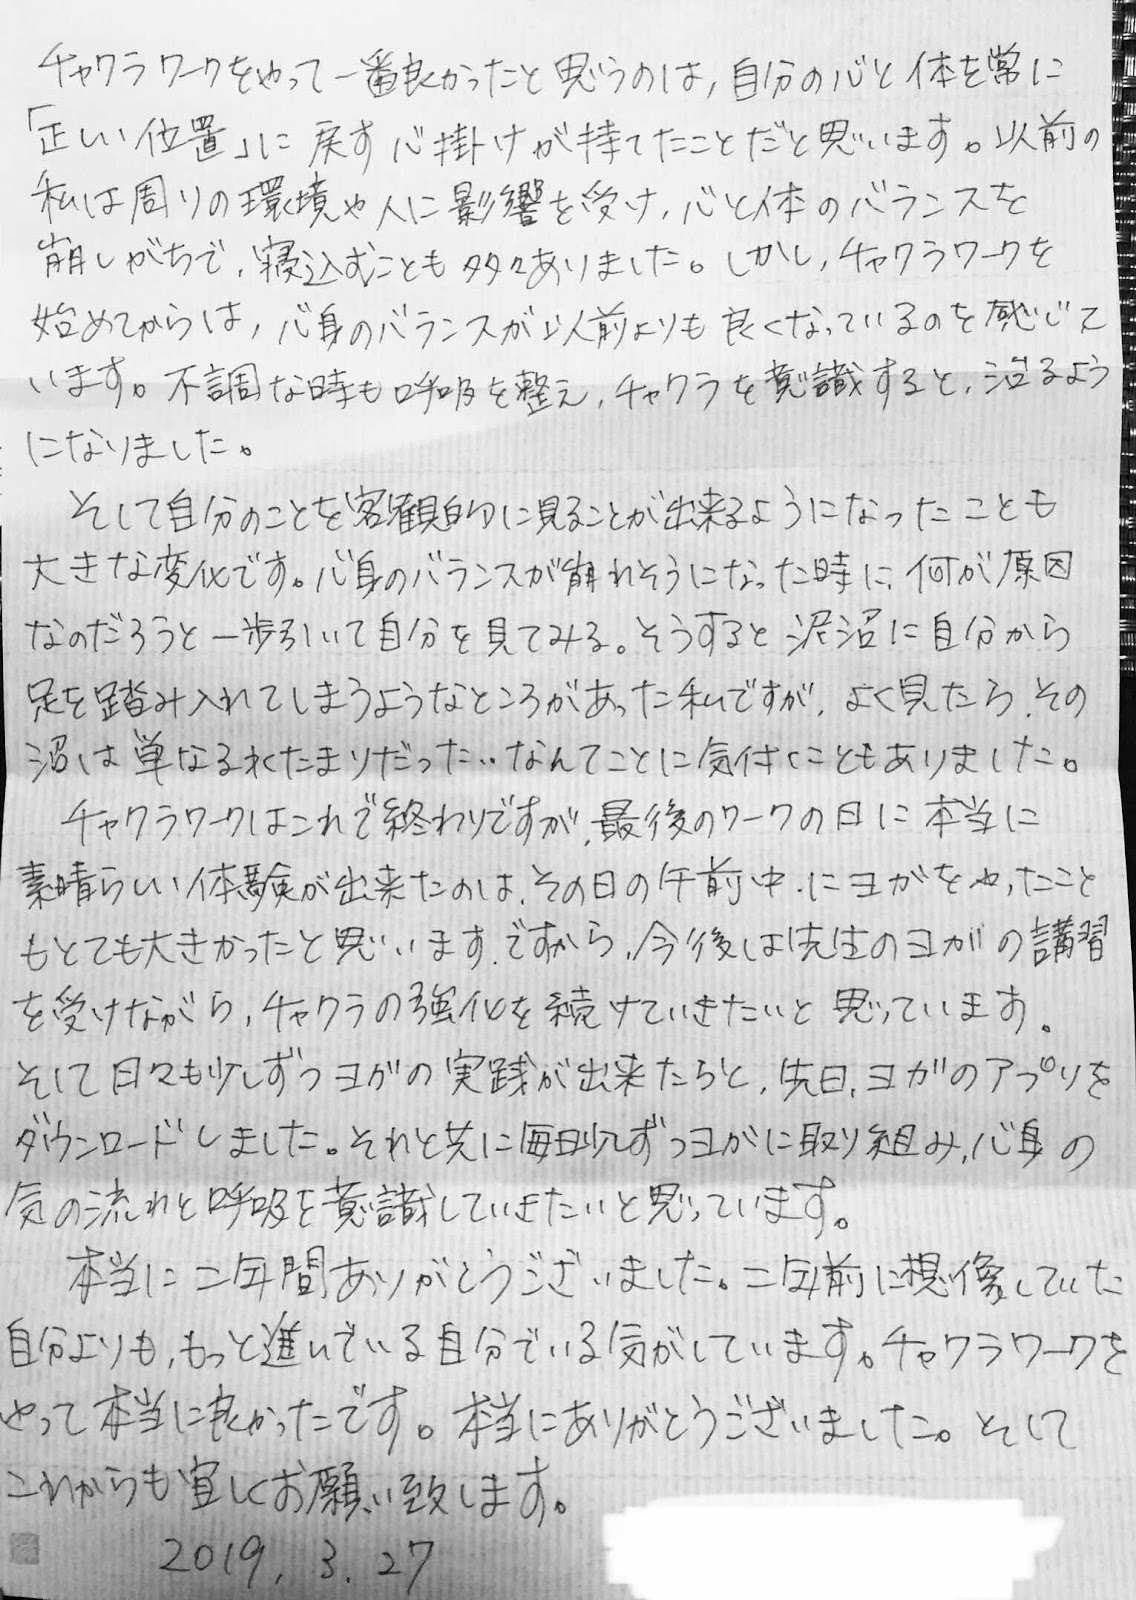 チャクラワークをやって一番良かったと思うのは,自分の心と体を常に
「正しい位置」に戻す心掛けが持てたことだと思います。以前の
私は周りの環境や人に影響を受け,心と体のバランスを
崩しがちで,寝込むことも多々ありました。しかし,チャクラワークを
始めてからは,心身のバランスが以前よりも良くなっているのを感じて
います。不調な時も呼吸を整え,チャクラを意識すると,治るよう
になりました。
そして自分のことを客観的に見ることが出来るようになったことも
大きな変化です。心身のバランスが崩れそうになった時に,何が原因
なのだろうと一歩引いて自分を見てみる。そうすると泥沼に自分から
足を踏み入れてしまうようなところがあった私ですが,よく見たら,その
沼は単なる水たまりだった‥なんてことに気付くこともありました。
チャクラワークはこれで終わりですが,最後のワークの日に本当に
素晴らしい体験が出来たのは,その日の午前中にヨガをやったこと
もとても大きかったと思います.ですから,今後は先生のヨガの講習
を受けながら,チャクラの強化を続けていきたいと思っています。
そして日々も少しずつヨガの実践が出来たらと,先日,ヨガのアプリを
ダウンロードしました。それと共に毎日少しずつヨガに取り組み,心身の
気の流れと呼吸を意識していきたいと思っています。
本当に二年間ありがとうございました。二年前に想像していた
自分よりも,もっと進んでいる自分でいる気がしています。チャクラワークを
やって本当に良かったです。本当にありがとうございました。そして
これからも宜しくお願い致します。
2019.3.27